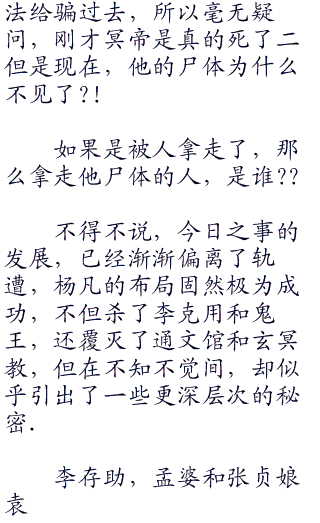 法给骗过去，所以毫无疑
问，刚才冥帝是真的死了二
但是现在，他的尸体为什么
不见了?!
如果是被人拿走了，那
么拿走他尸体的人，是谁??
不得不说，今日之事的
发展，已经渐渐偏离了轨
遭，杨凡的布局固然极为成
功，不但杀了李克用和鬼
王，还覆灭了通文馆和玄冥
教，但在不知不觉间，却似
乎引出了一些更深层次的秘
密.
李存助，孟婆和张贞娘
袁